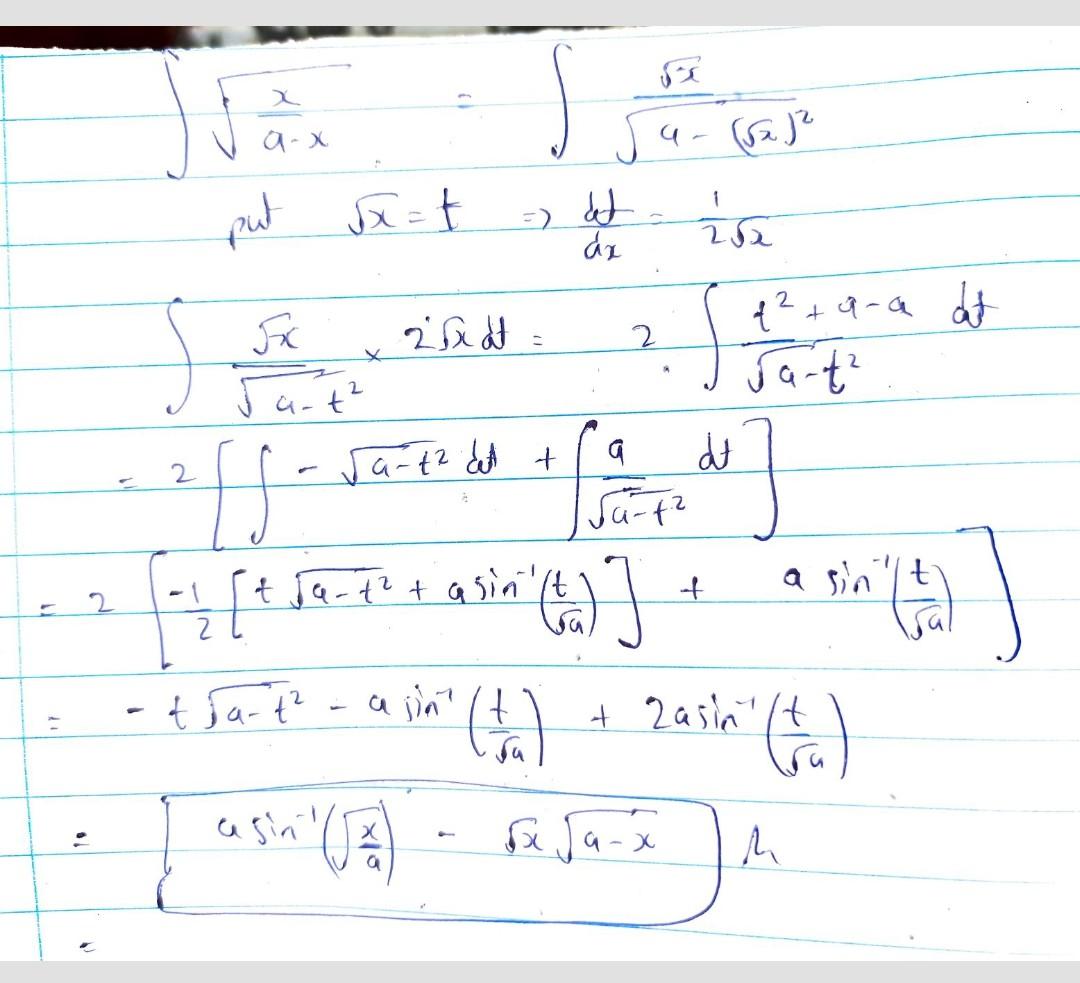 ∫ √(x/(a-x)) = ∫ √x / √(a-(√x)²)
put √x = t ⇒ dt/dx = 1/(2√x)
∫ √x/√(a-t²) × 2√x dt = 2 . ∫ (t²+a-a)/√(a-t²) dt
= 2 [ ∫ - √(a-t²) dt + ∫ a/√(a-t²) dt ]
= 2 [ -1/2 [ t √(a-t²) + a sin⁻¹(t/√a) ] + a sin⁻¹(t/√a) ]
= - t √(a-t²) - a sin⁻¹(t/√a) + 2a sin⁻¹(t/√a)
= a sin⁻¹(√(x/a)) - √x √(a-x)
=